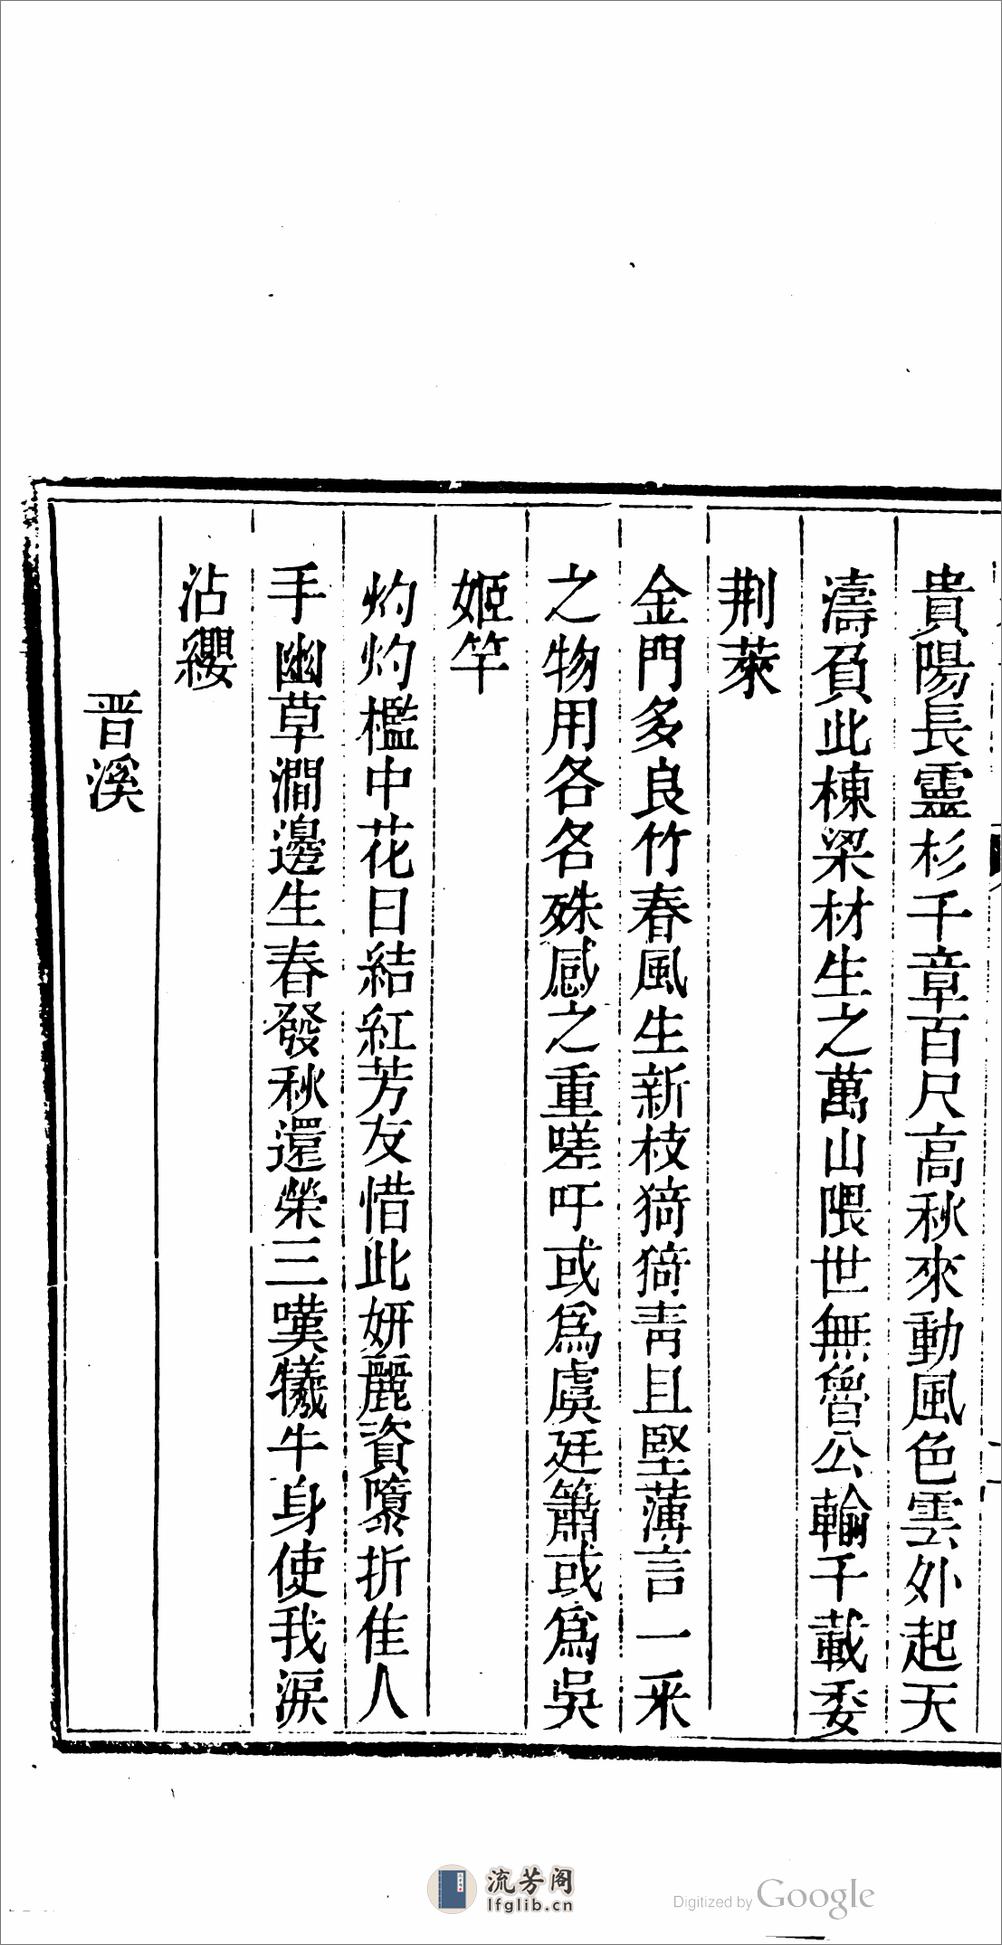 貴陽長靈杉千章百尺高秋來動風色雲外起天
濤負此棟梁材生之萬山隈世無魯公輸千載委
荆萊
金門多良竹春風生新枝猗猗靑且堅薄言一采
之物用各各殊感之重嗟吁或爲虞廷簫或爲吳
姬竿
灼灼檻中花日結紅芳友惜此妍麗資隳折佳人
手幽草澗邊生春發秋還榮三嘆犧牛身使我淚
沾纓
晋溪
流芳阁
lfglib.cn
Digitized by Google